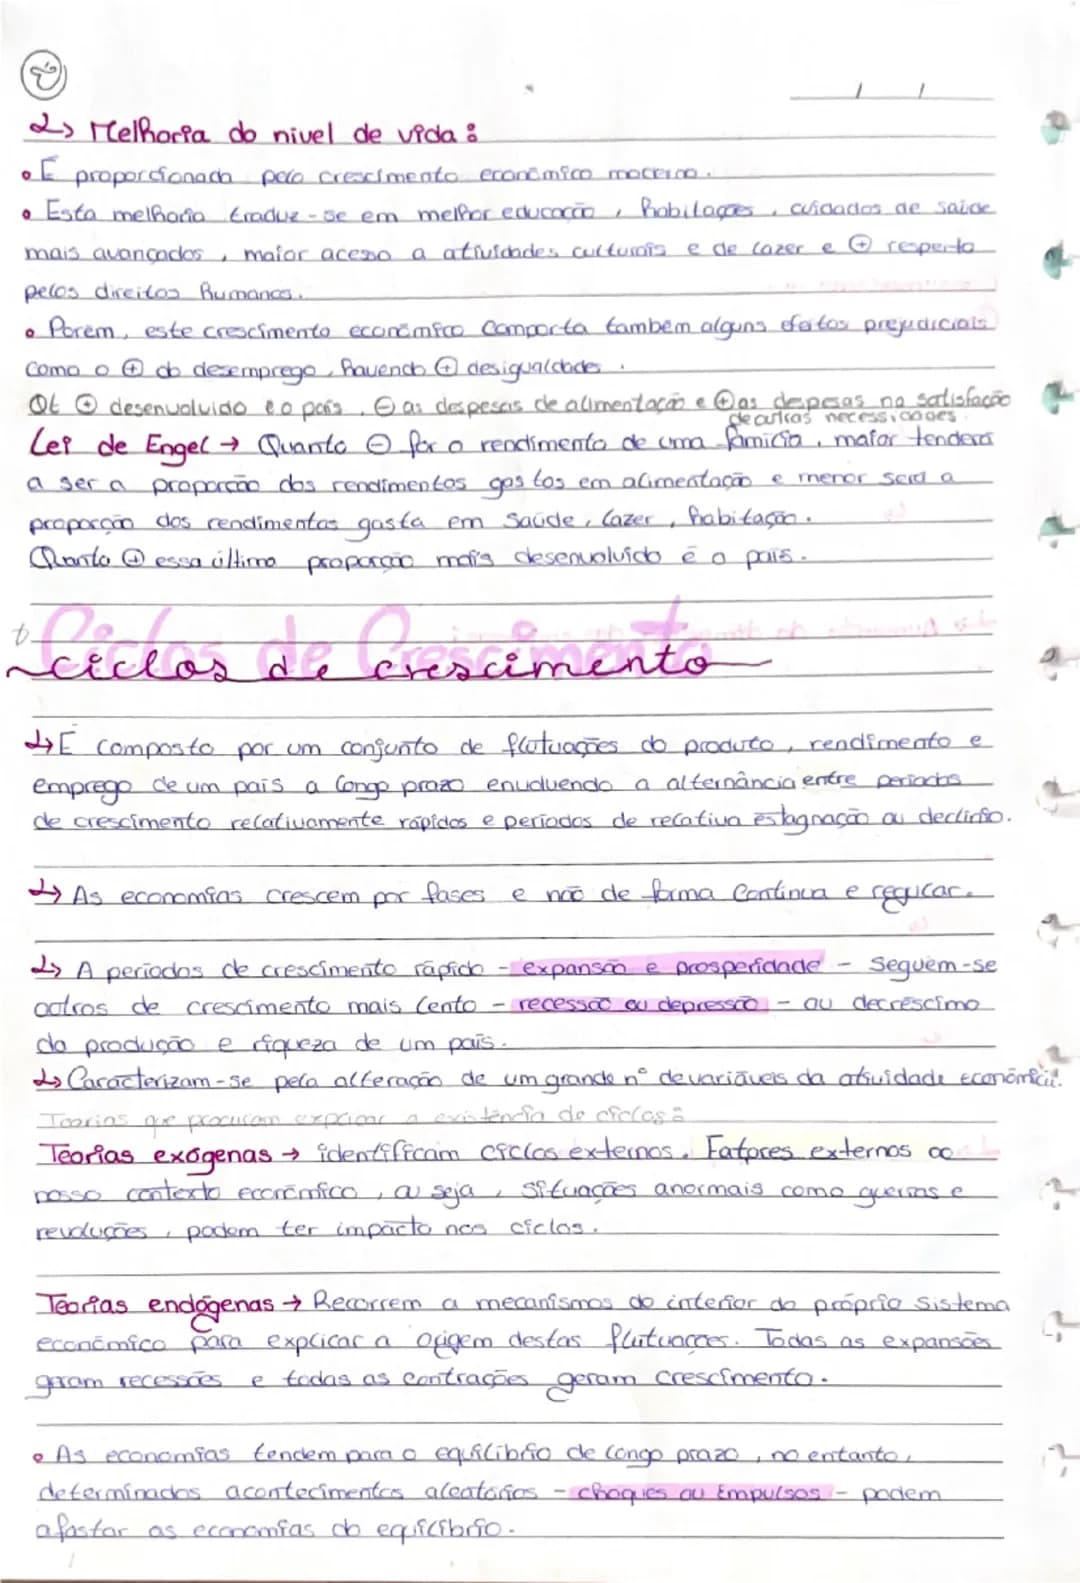 ↳ Melhoria do nivel de vida:
• É proporcionada pelo crescimento económico moderno.
• Esta melhoria traduz-se em melhor educação, habitações, cuidados de saúde
mais avançados, maior acesso a atividades culturais e de lazer e ⊕ respeito
pelos direitos humanos.
• Porém, este crescimento económico comporta também alguns efeitos prejudiciais
como o ⊕ do desemprego, havendo ⊕ desigualdades.
Qt ⊕ desenvolvido é o país, ⊖ as despesas de alimentação e ⊕ as despesas na satisfação
de outras necessidades
Lei de Engel → Quanto ⊖ for o rendimento de uma família, maior tenderá
a ser a proporção dos rendimentos gastos em alimentação e menor será a
proporção dos rendimentos gasta em saúde, lazer, habitação.
Quanto ⊕ essa última proporção mais desenvolvido é o país.
Ciclos de Crescimento
ciclos de crescimento
↳ É composto por um conjunto de flutuações do produto, rendimento e
emprego de um país a longo prazo envolvendo a alternância entre períodos
de crescimento relativamente rápidos e períodos de relativa estagnação ou declínio.
↳ As economias crescem por fases e não de forma contínua e regular.
↳ A períodos de crescimento rápido - expansão e prosperidade - seguem-se
outros de crescimento mais lento - recessão ou depressão - ou decréscimo
da produção e riqueza de um país.
↳ Caracterizam-se pela alteração de um grande nº de variáveis da atividade económica.
Teorias que procuram explicar a existência de ciclos:
Teorias exógenas → identificam ciclos externos. Fatores externos ao
nosso contexto económico, ou seja, situações anormais como guerras e
revoluções, podem ter impacto nos ciclos.
Teorias endógenas → Recorrem a mecanismos do interior do próprio sistema
económico para explicar a origem destas flutuações. Todas as expansões
geram recessões e todas as contrações geram crescimento.
• As economias tendem para o equilíbrio de longo prazo, no entanto,
determinados acontecimentos aleatórios - choques ou impulsos - podem
afastar as economias do equilíbrio.